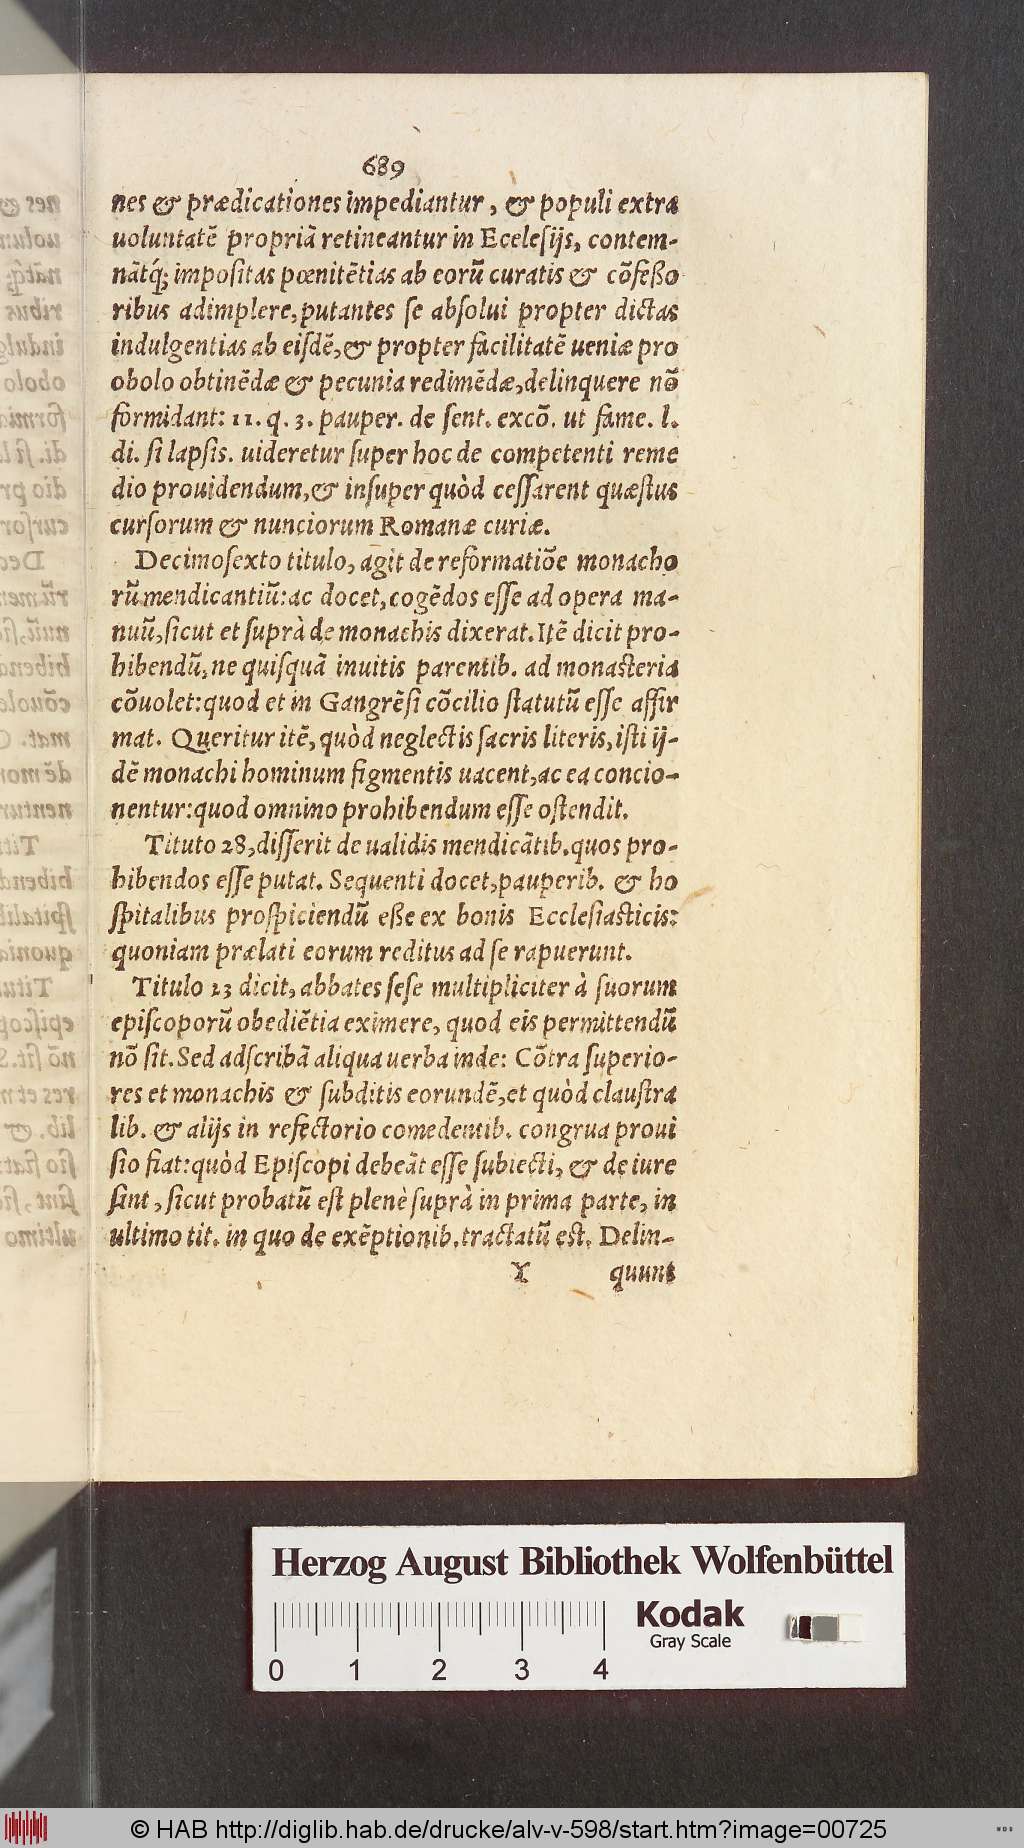 689
nes & prædicationes impediantur, & populi extra
uoluntatē propriā retineantur in Ecelesijs, contem-
nātq́; impositas pœnitētias ab eorū curatis & cōfeßo
ribus adimplere, putantes se absolui propter dictas
indulgentias ab eisdē, & propter facilitatē ueniæ pro
obolo obtinēdæ & pecunia redimēdæ, delinquere nō
formidant: 11. q. 3. pauper. de sent. excō. ut fame. l.
di. si lapsis. uideretur super hoc de competenti reme
dio prouidendum, & insuper quòd cessarent quæstus
cursorum & nunciorum Romanæ curiæ.
Decimosexto titulo, agit de reformatiōe monacho
rū mendicantiū: ac docet, cogēdos esse ad opera ma-
nuū, sicut et suprà de monachis dixerat. Itē dicit pro-
hibendū, ne quisquā inuitis parentib. ad monasteria
cōuolet: quod et in Gangrēsi cōcilio statutū esse affir
mat. Queritur itē, quòd neglectis sacris literis, isti ij-
dē monachi hominum figmentis uacent, ac ea concio-
nentur: quod omnino prohibendum esse ostendit.
Tituto 28, disserit de ualidis mendicātib. quos pro-
hibendos esse putat. Sequenti docet, pauperib. & ho
spitalibus prospiciendū eße ex bonis Ecclesiasticis:
quoniam prælati eorum reditus ad se rapuerunt.
Titulo 23 dicit, abbates sese multipliciter à suorum
episcoporū obediētia eximere, quod eis permittendū
nō sit. Sed adscribā aliqua uerba inde: Cōtra superio-
res et monachis & subditis eorundē, et quòd claustra
lib. & alijs in refectorio comedentib. congrua proui
sio fiat: quòd Episcopi debeāt esse subiecti, & de iure
sint, sicut probatū est plenè suprà in prima parte, in
ultimo tit. in quo de exēptionib. tractatū est. Delin-
Y quunt
Herzog August Bibliothek Wolfenbüttel
Kodak
Gray Scale
0 1 2 3 4
© HAB http://diglib.hab.de/drucke/alv-v-598/start.htm?image=00725